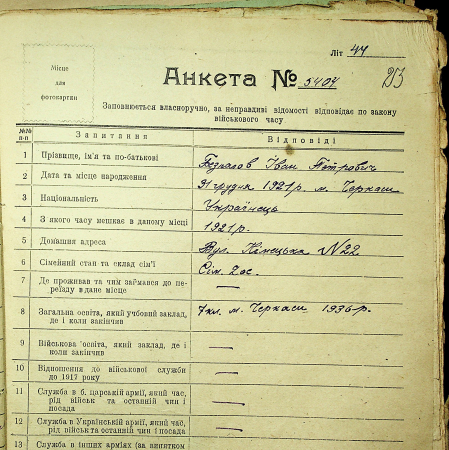 Літ 44
Місце
для
фотокартки
Анкета № 5404
Заповнюється власноручно, за неправдиві відомості відповідає по закону
військового часу
№№ п-п Запитання Відповіді
1 Прізвище, ім'я та по-батькові Іван Петрович
2 Дата та місце народження грудня 1921 р. м. Черкаси
3 Національність Українець
4 З якого часу мешкає в даному місці 1921 р.
5 Домашня адреса Вул. Німецька №22
6 Сімейний стан та склад сім'ї Сім.
7 Де проживав та чим займався до пе-
реїзду в дане місце —
8 Загальна освіта, який учбовий заклад,
де і коли закінчив 7 кл. м. Черкаси 1936 р.
9 Військова освіта, який заклад, де і
коли закінчив —
10 Відношення до військової служби
до 1917 року —
11 Служба в б. царській армії, який час,
рід військ та останній чин і
посада —
12 Служба в Українській армії, який час,
рід військ та останній чин і посада —
13 Служба в інших арміях (за винятком